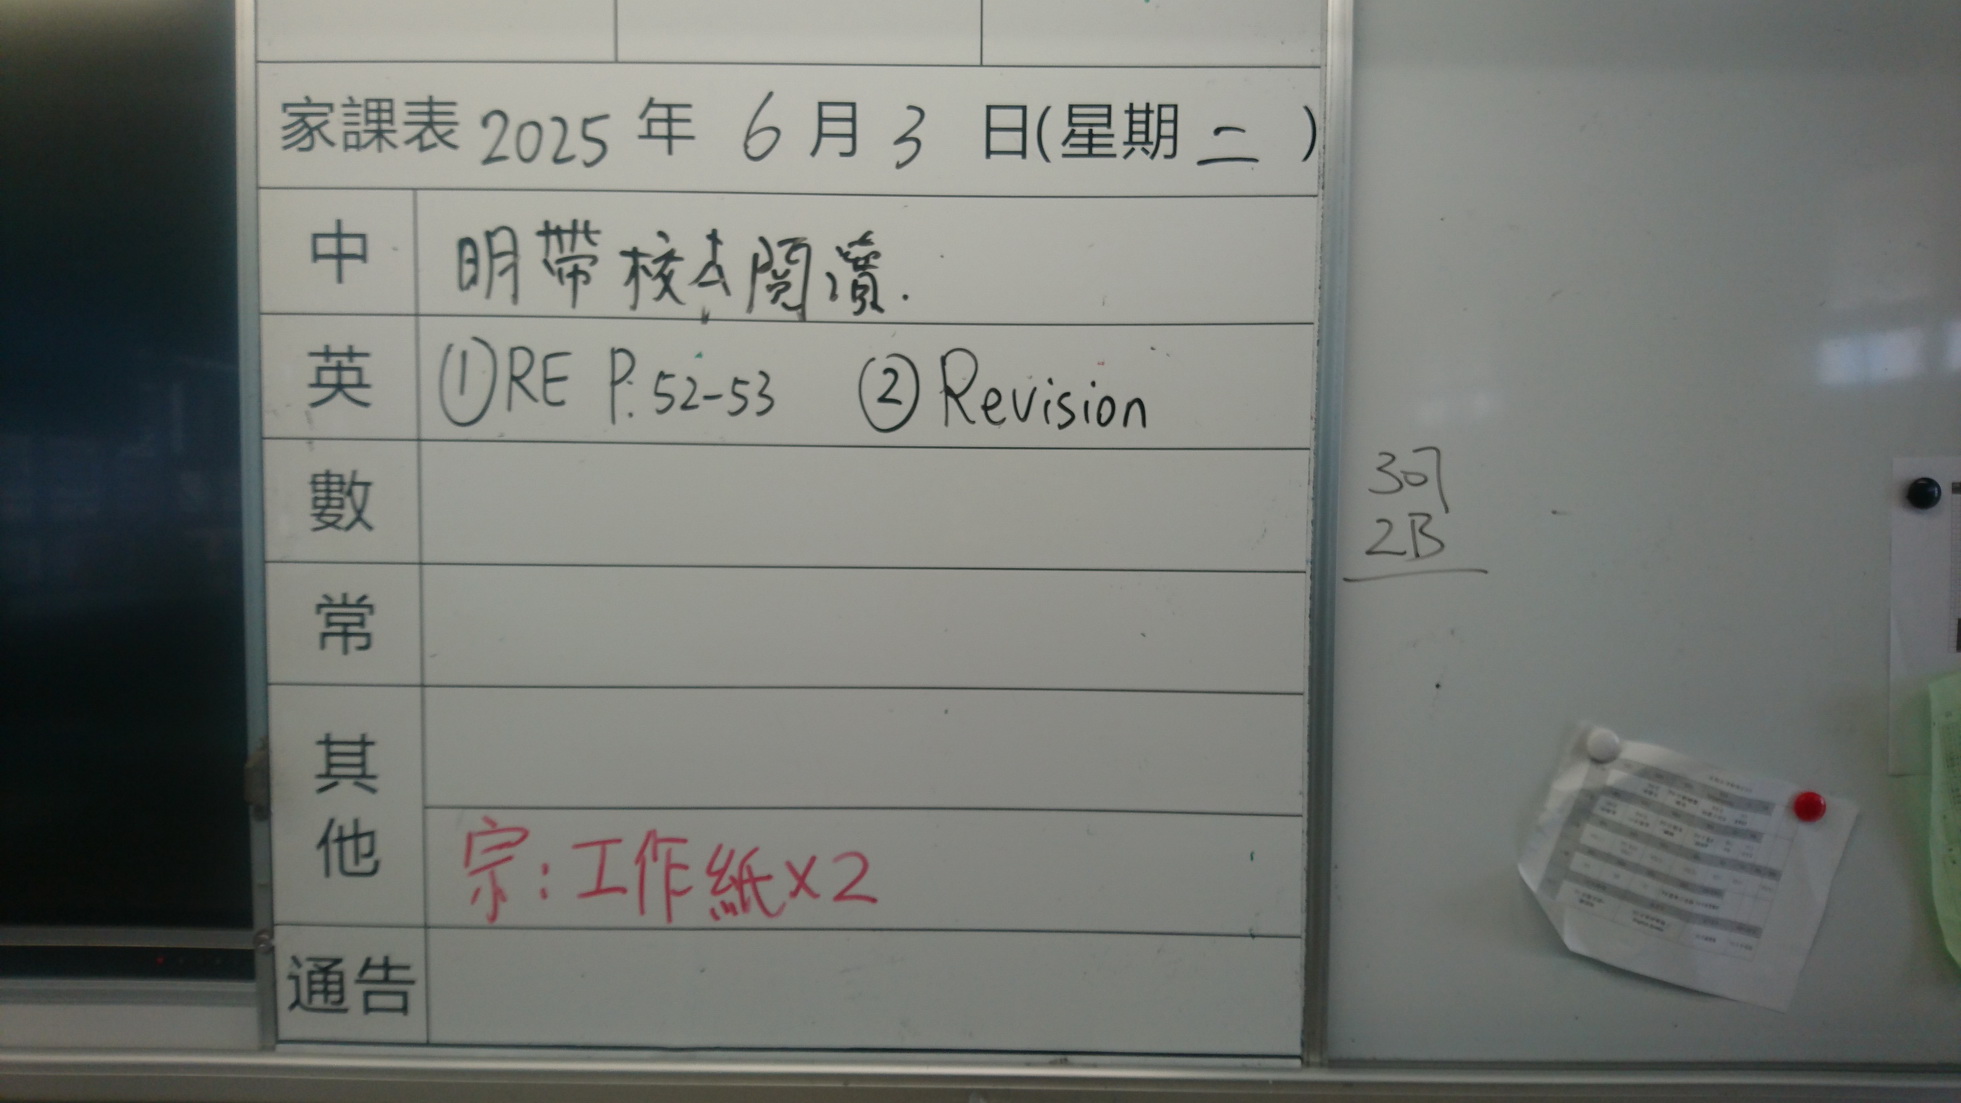 家課表 2025 年 6 月 3 日(星期 二 )
中 明帶校本閱讀.
英 ①RE P. 52-53 ② Revision
數
常
其他
宗:工作紙×2
通告
2B